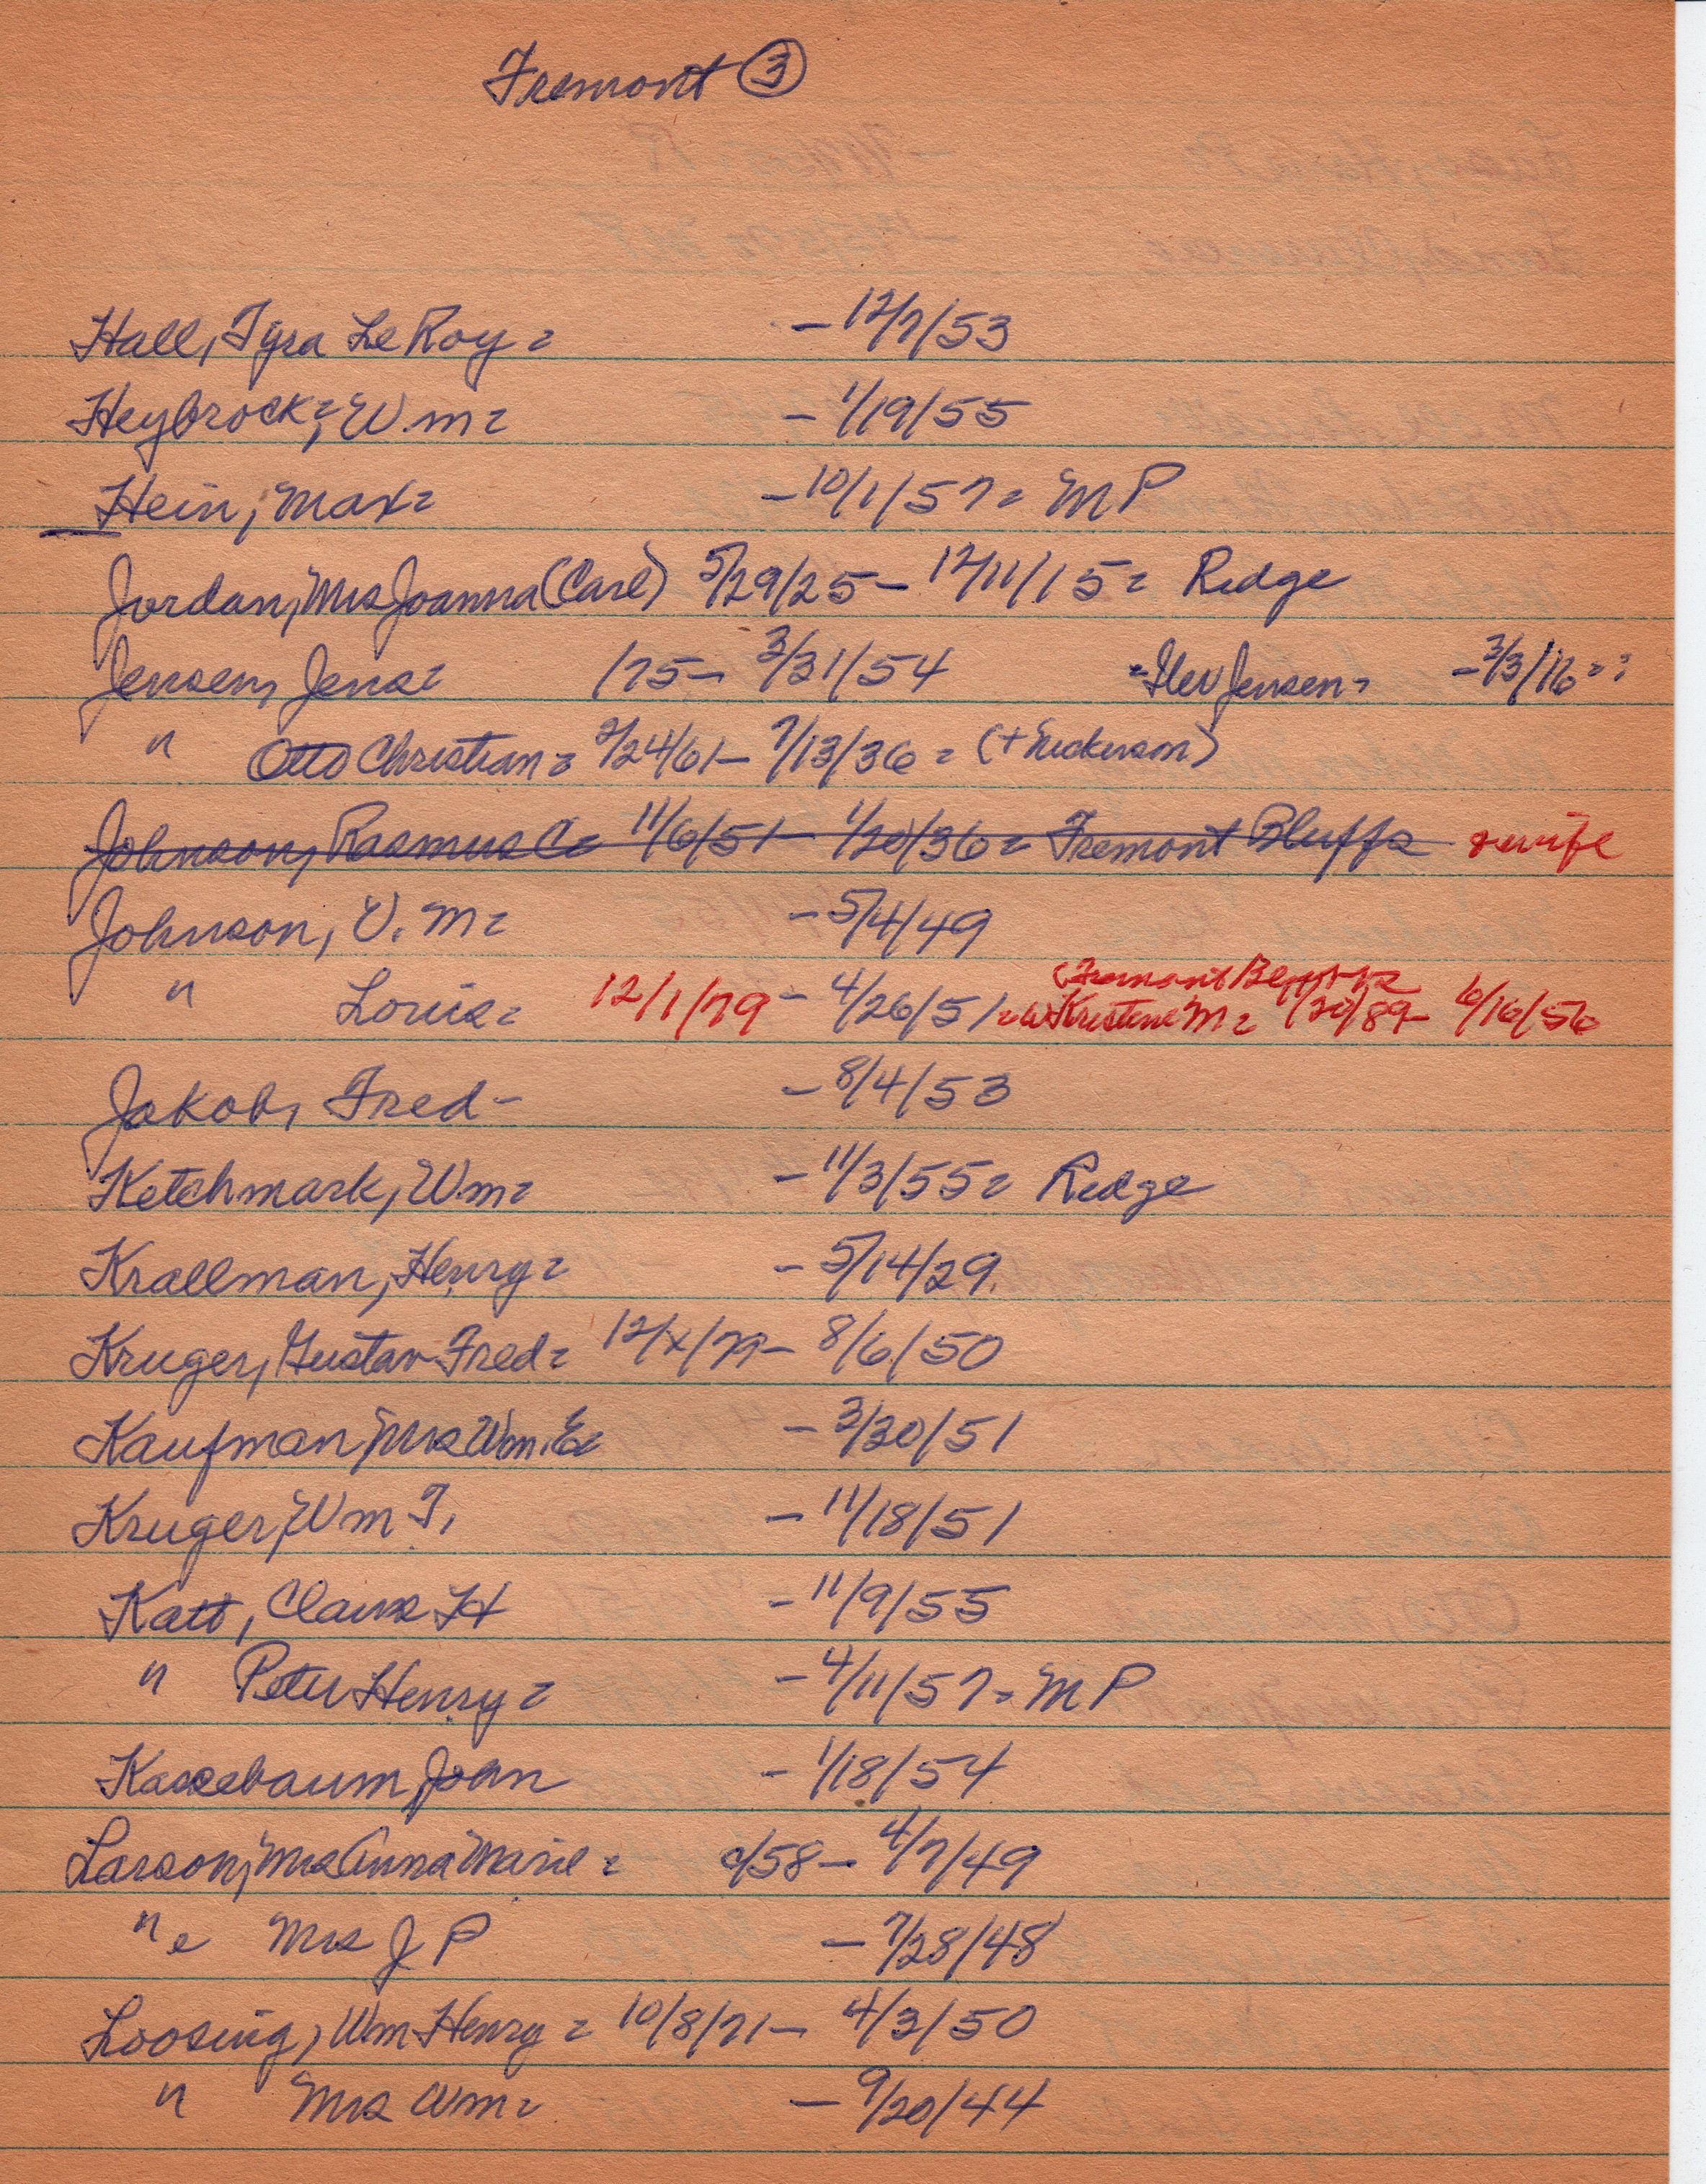 Fremont ③
Hall, Tyra LeRoy = - 12/7/53
Heybrock, Wm = - 1/19/55
Hein, Max = - 10/1/57 = MP
Jordan, Mrs Joanna (Carl) 5/29/25 - 12/11/15 = Ridge
Jensen, Jens = /75 - 3/31/54 = Jensen = - 3/3/16 = ?
" Otto Christian = 2/24/61 - 7/13/36 = (+ Nickerson)
Johnson, Rasmus C = 11/6/51 - 1/20/36 = Fremont Bluffs & wife
Johnson, V. M = - 5/4/49
(Fremont Bluffs
" Louis = 12/1/79 - 4/26/51 = w Kristene M = 1/20/89 - 6/16/56
Jakob, Fred - - 8/4/53
Ketchmark, Wm = - 11/3/55 = Ridge
Krallman, Henry = - 5/14/29.
Kruger, Gustav Fred = 12/x/79 - 8/6/50
Kaufman, Mrs Wm. E = - 3/30/51
Kruger, Wm F. - 11/18/51
Katt, Claus H - 11/9/55
" Peter Henry = - 4/11/57 = MP
Kassebaum, John - 1/18/54
Larson, Mrs Anna Marie = c/58 - 4/7/49
" = Mrs J P - 7/28/48
Loosing, Wm Henry = 10/8/71 - 4/3/50
" Mrs Wm = - 9/20/44